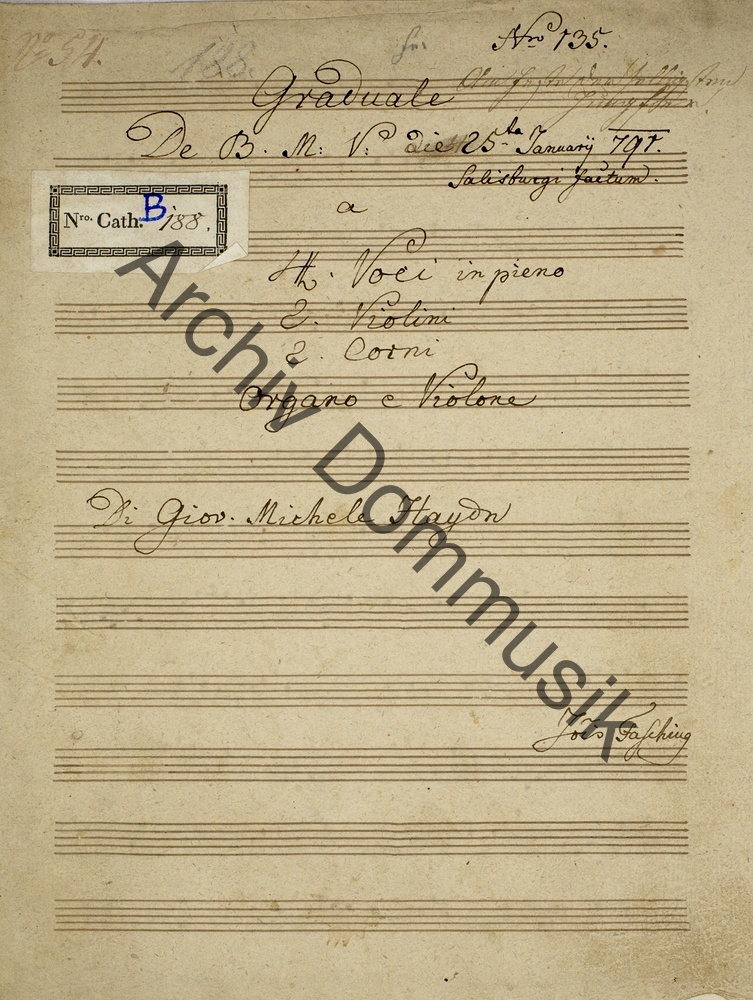 Nro 135.
No 54.
188.
Graduale
De B. M: V: die 25ta Januarÿ 791.
Salisburgi factum.
Nro. Cath. B 188.
a
4. Voci in pieno
2. Violini
2. Corni
Organo e Violone
Di Giov. Michele Haydn
Johs Fasching
Archiv Dommusik